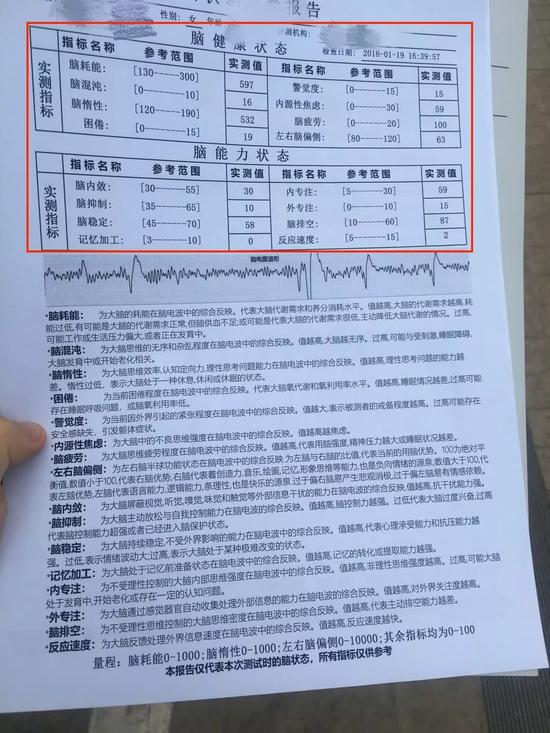 报告
性别: 女 年龄: 测机构:
脑健康状态
检查日期: 2018-01-19 16:39:57
实测指标
指标名称 参考范围 实测值
脑耗能: [130------300] 597
脑混沌: [0------10] 16
脑惰性: [120------190] 532
困倦: [0------15] 19
指标名称 参考范围 实测值
警觉度: [0------15] 15
内源性焦虑: [0------30] 59
脑疲劳: [0------20] 100
左右脑偏侧: [80------120] 63
脑能力状态
实测指标
指标名称 参考范围 实测值
脑内敛: [30------55] 30
脑抑制: [35------65] 10
脑稳定: [45------70] 58
记忆加工: [3------10] 0
指标名称 参考范围 实测值
内专注: [5------30] 59
外专注: [0------10] 15
脑排空: [10------60] 87
反应速度: [5------15] 2
脑电图波形
•脑耗能: 为大脑的耗能在脑电波中的综合反映。代表大脑代谢需求和养分消耗水平。值越高,大脑的代谢需求越高,耗
能过低,有可能是大脑的代谢需求正常,但脑供血不足;或可能是代表大脑的代谢需求很低,主动降低大脑代谢的情况。过高,
可能工作或生活压力偏大,或者正在发育中。
•脑混沌: 为大脑思维的无序和杂乱程度在脑电波中的综合反映。值越高,大脑越无序。过高,可能与受刺激,睡眠障碍,
大脑发育中或开始老化相关。
•脑惰性: 为大脑思维效率,认知定向力,理性思考问题能力在脑电波中的综合反映。值越高,理性思考问题的能力越
差。惰性过低,表示大脑处于一种休息,休闲或休眠的状态。
•困倦: 为当前困倦程度在脑电波中的综合反映。代表大脑氧代谢和氧利用率水平。值越高,睡眠情况越差,过高可能
存在睡眠呼吸问题,或脑氧利用率低。
•警觉度: 为当前因外界引起的紧张程度在脑电波中的综合反映。值越大,表示被测者的戒备程度越高。过高可能存在
安全感缺失,引发躯体症状。
•内源性焦虑: 为大脑中的不良思维强度在脑电波中的综合反映。值越高越焦虑。
•脑疲劳: 为大脑思维疲劳程度在脑电波中的综合反映。值越高,代表用脑强度,精神压力越大或睡眠状况越差。
•左右脑偏侧: 为左右脑半球功能状态在脑电波中的综合反映,为左脑与右脑的比值,代表当前的用脑优势。100为绝对平
衡值,数值小于100,代表右脑优势,右脑代表着创造力,音乐,绘画,记忆形象思维等能力,也是负向情绪的源泉;数值大于100,代
表左脑优势,左脑代表语言能力,逻辑能力,条理性,也是快乐的源泉,过于偏右脑易产生悲观消极,过于偏左脑易有情感依赖。
•脑内敛: 为大脑屏蔽视觉,听觉,嗅觉,味觉和触觉等外部信息干扰的能力在脑电波的综合反映,值越高,抗干扰能力强。
•脑抑制: 为大脑主动放松与自我控制能力在脑电波的综合反映。值越高,脑控制力越强。过低代表大脑过度兴奋,过高
代表脑控制能力超强或者已经进入脑保护状态。
•脑稳定: 为大脑持续稳定,不受外界影响的能力在脑电波中的综合反映。值越高,代表心理承受能力和抗压能力越
强。过低,表示情绪波动大;过高,表示大脑处于某种极难改变的状态。
•记忆加工: 为大脑处于记忆前准备状态在脑电波中的综合反映。值越高,记忆的转化或提取能力越强。
•内专注: 为不受理性控制的大脑内部思维强度在脑电波中的综合反映。值越高,非理性思维强度越高。过高,可能大脑
处于发育中,开始老化或存在一定的认知问题。
•外专注: 为大脑通过感觉器官自动收集处理外部信息的能力在脑电波中的综合反映。值越高,对外界关注度越高。
•脑排空: 为不受理性思维控制的大脑思维密度在脑电波中的综合反映。值越高,代表主动排空能力越差。
•反应速度: 为大脑反馈处理外界信息速度在脑电波中的综合反映。值越高,反应速度越快。
量程: 脑耗能0-1000;脑惰性0-1000;左右脑偏侧0-10000;其余指标均为0-100
本报告仅代表本次测试时的脑状态，所有指标仅供参考